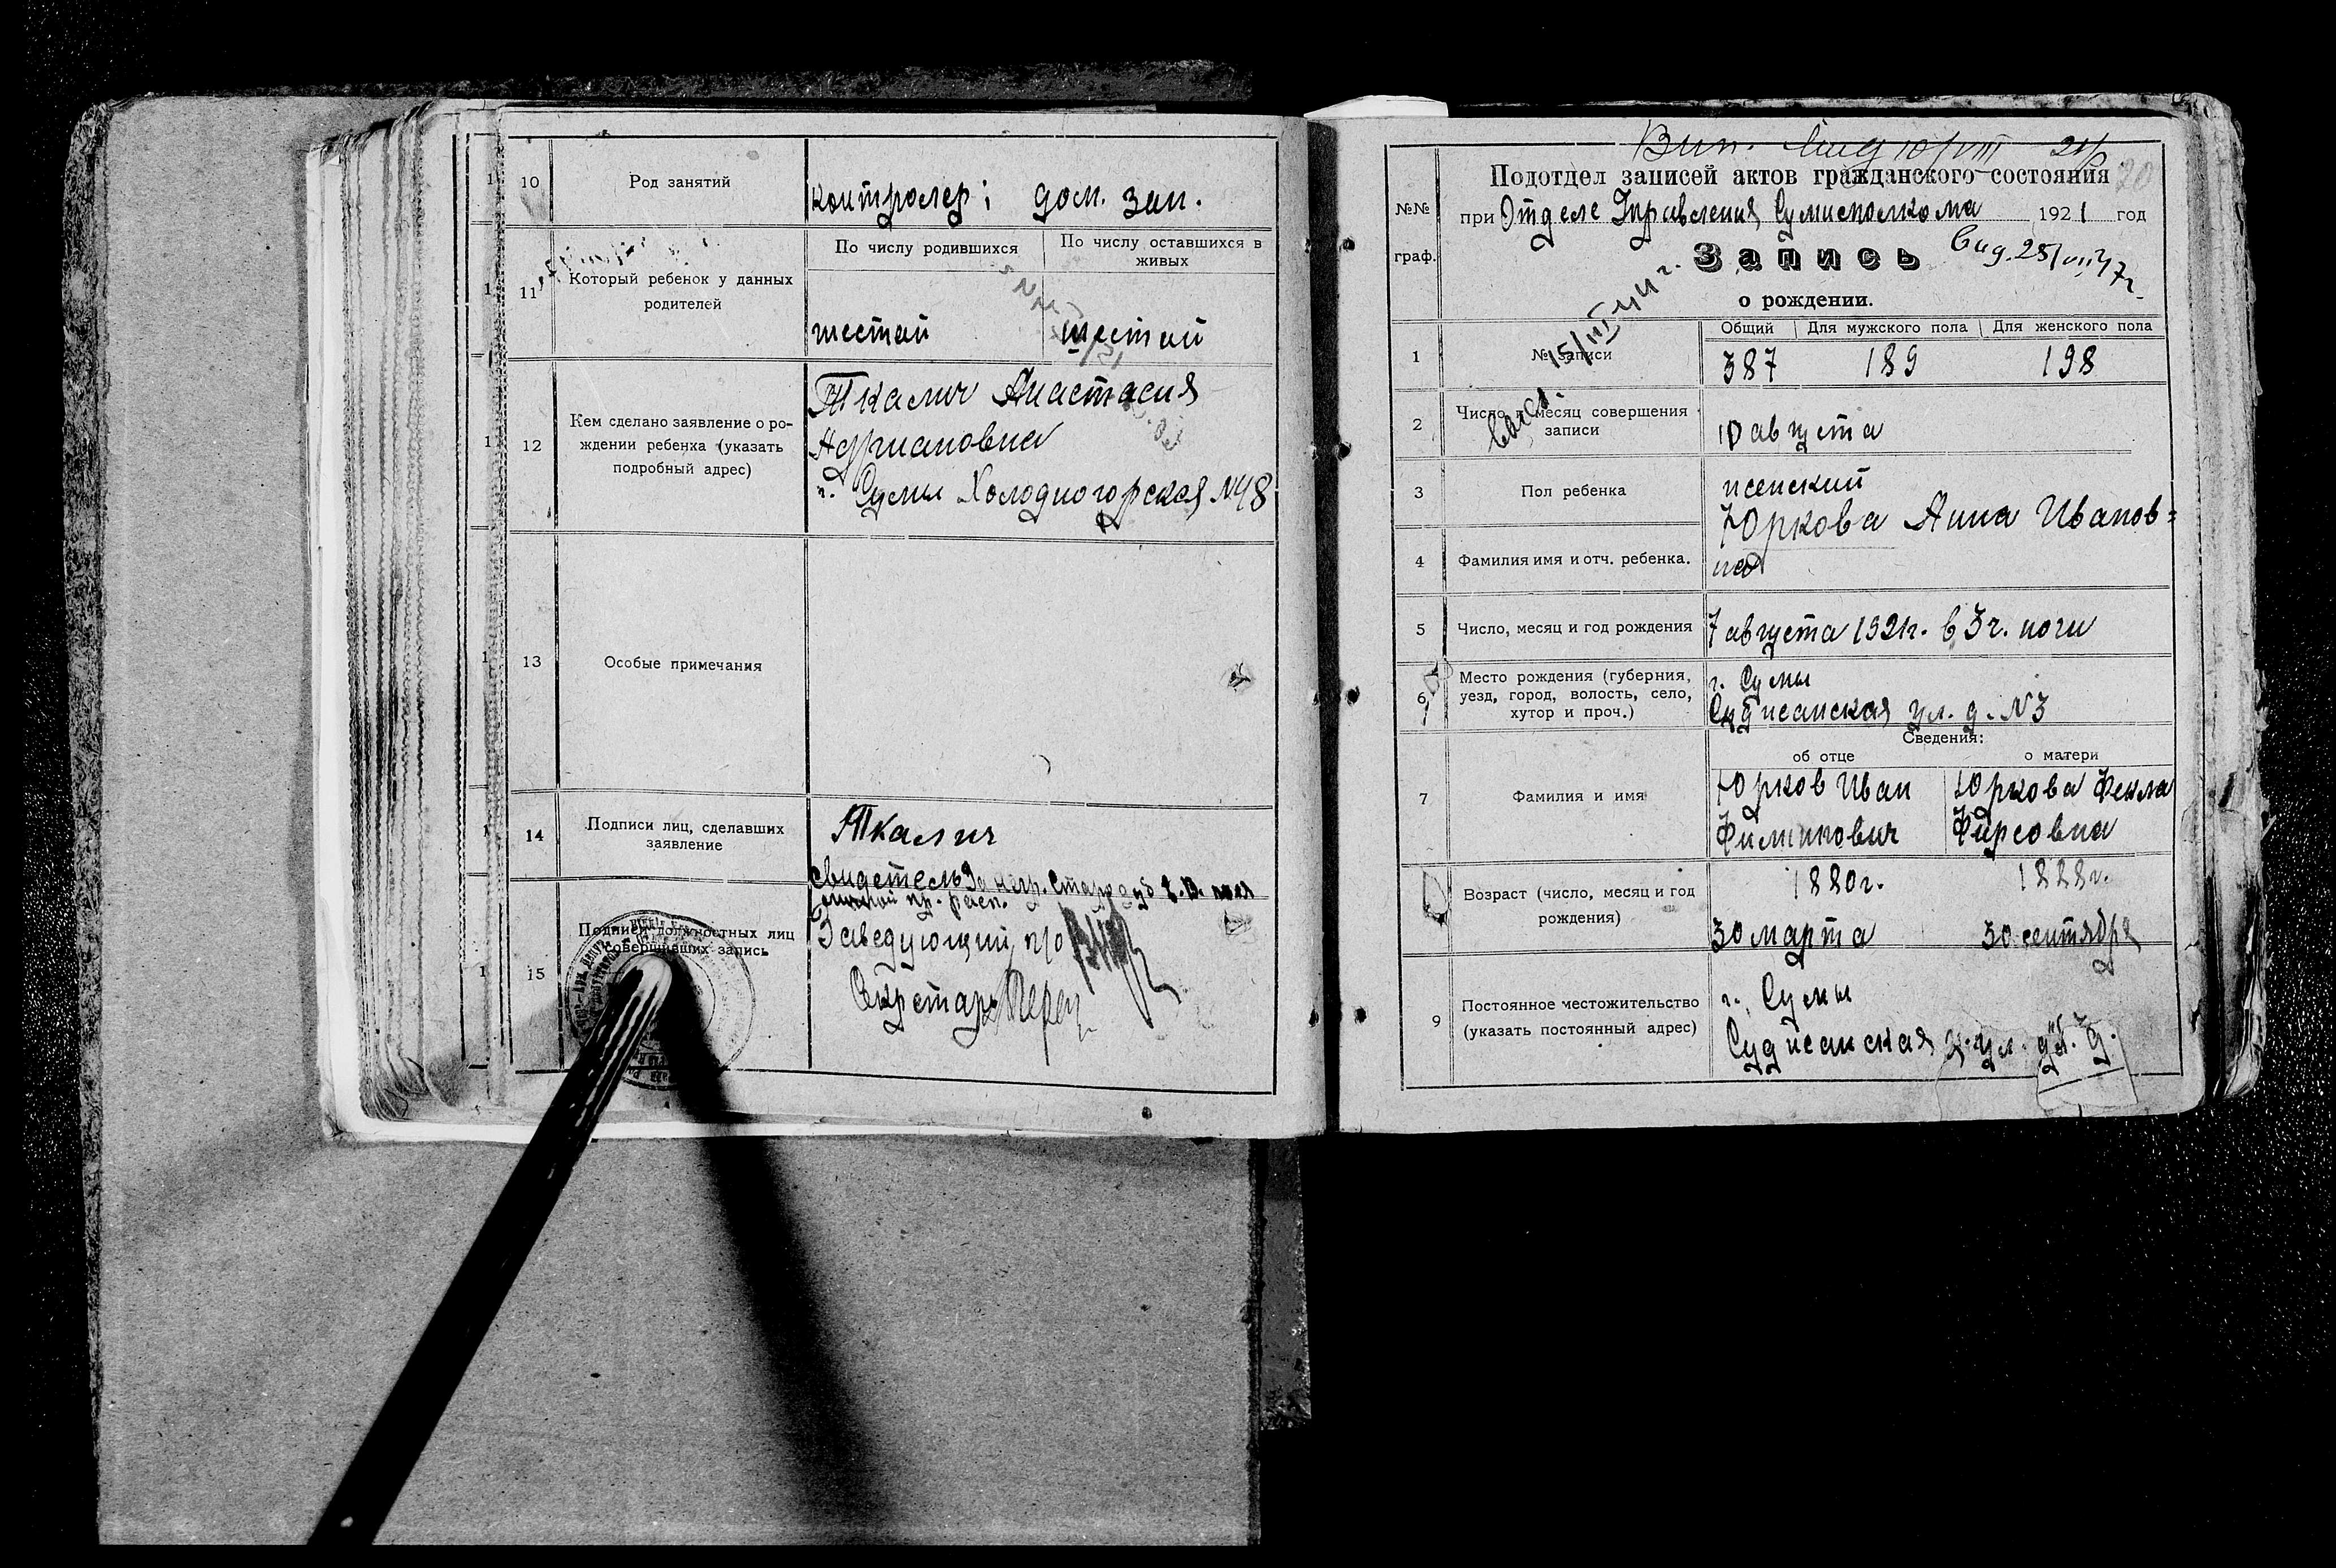 10
Род занятий
контролер; дом. зан.
11
Который ребенок у данных
родителей
По числу родившихся
По числу оставшихся в
живых
шестой
шестой
12
Кем сделано заявление о ро-
ждении ребенка (указать
подробный адрес)
Ткалич Анастасия
Адриановна
г. Сумы Холодногорская №48
13
Особые примечания
14
Подписи лиц, сделавших
заявление
Ткалич
свидетель
15
Подписи должностных лиц
совершивших запись
Заведующий п/о
Секретарь
Подотдел записей актов гражданского состояния
20
№№
граф.
при Отделе Управления Сумисполкома 1921 год
Запись
о рождении.
Общий
Для мужского пола
Для женского пола
1
№ записи
387
189
198
2
Число и месяц совершения
записи
10 августа
3
Пол ребенка
женский
4
Фамилия имя и отч. ребенка.
Юркова Анна Иванов=
на
5
Число, месяц и год рождения
7 августа 1921г. в 3 ч. ночи
6
Место рождения (губерния,
уезд, город, волость, село,
хутор и проч.)
г. Сумы
Суджанская ул. д. №3
Сведения:
об отце
о матери
7
Фамилия и имя
Юрков Иван
Филипович
Юркова Фекла
Фирсовна
Возраст (число, месяц и год
рождения)
1880г.
30 марта
1888г.
30 сентября
9
Постоянное местожительство
(указать постоянный адрес)
г. Сумы
Суджанская ул.